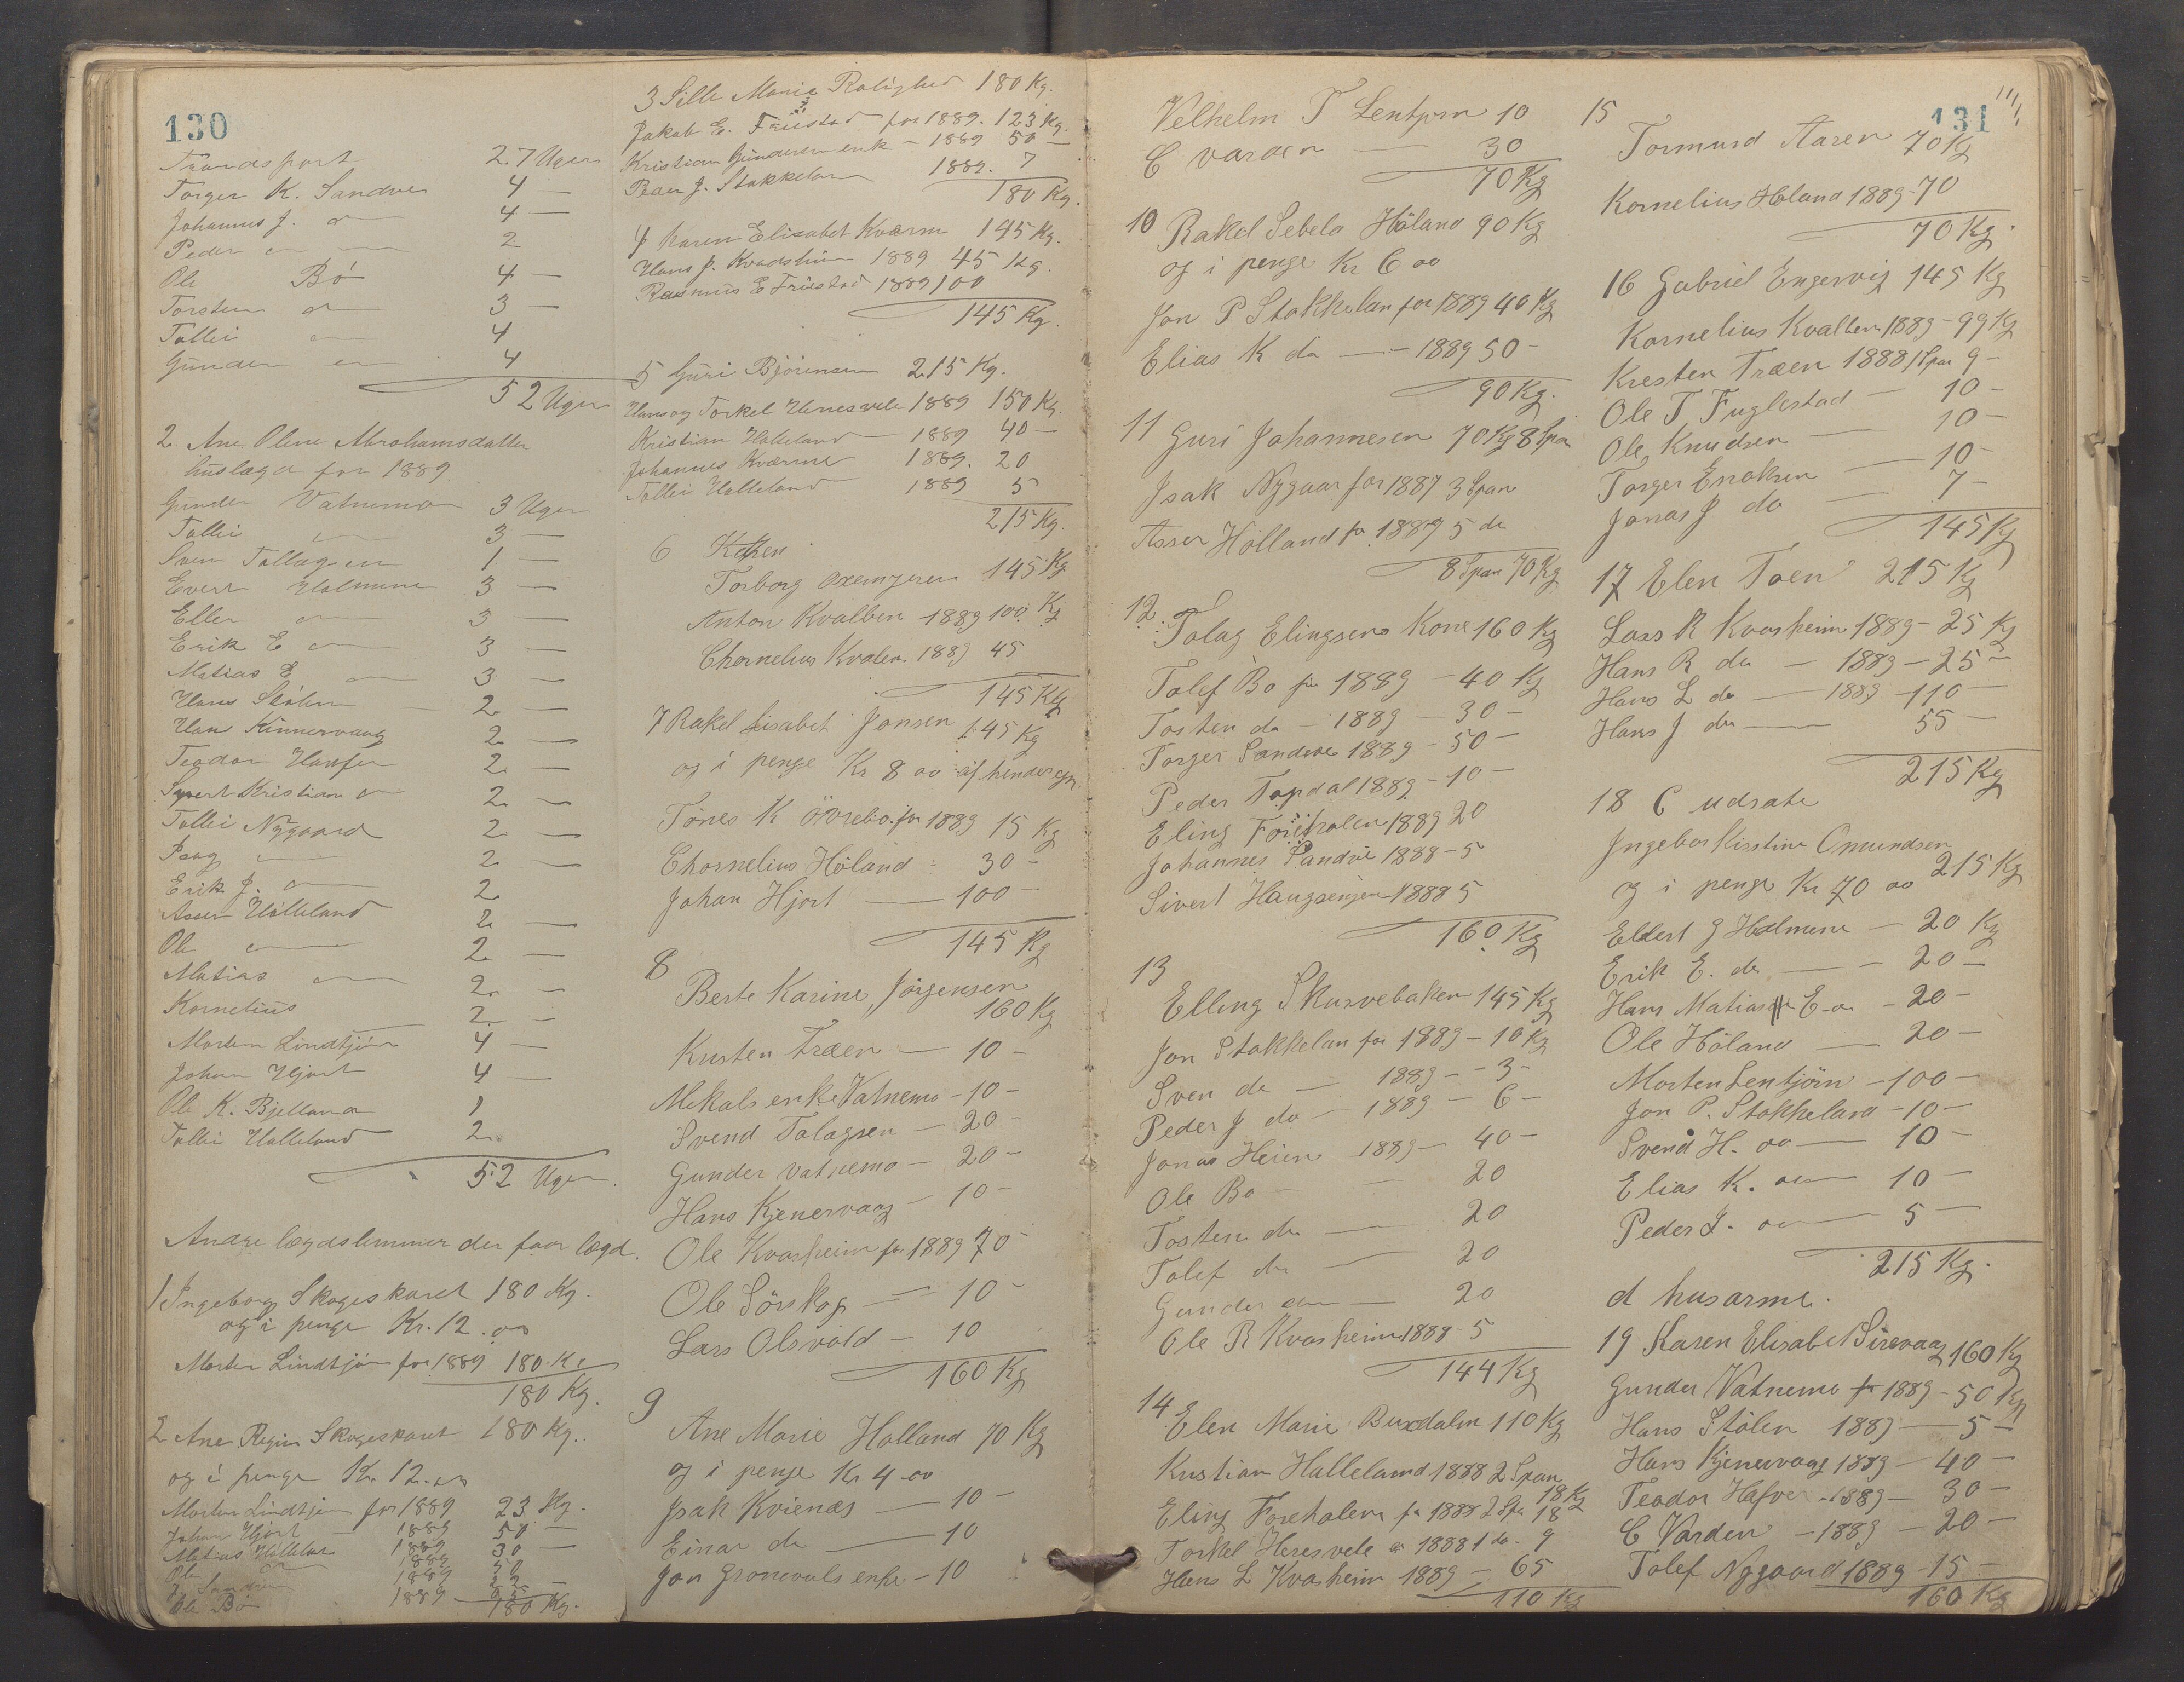 130
Transport 27 Uger
Torger K. Sandve 4 —
Johannes J. do 4 —
Peder do 2
Ole Bö 4 —
Torsten do 3 —
Tollei do 4
Gunder do 4
52 Uger
2 Ane Oline Abrahamsdatter
huslægd for 1889
Gunder Vatnemo 3 Uger
Tollei — 3 —
Sven Tollagsen 1 —
Evert Holmene 3 —
Eller do 3 —
Erik E do 3 —
Matias E do 3 —
Hans Stölen 2 —
Hans Kinnervaag 2 —
Teodor 2 —
Kristian do 2 —
Tollei Nygaard 2 —
2 —
Erik J. do 2
Asser Hölleland 2 —
Ole do 2 —
Matias do 2 —
Kornelius 2 —
Morten Lindtjörn 4 —
Johan Hjort 4 —
Ole K. Bjelland 1
Tollei Hölleland 2
52 Uger.
Andre lægdslemmer der faar lægd.
1 Ingeborg Skogeskaret 180 Kg.
og i penge Kr. 12.00
Morten Lindtjörn for 1889 180 Kg
180 Kg.
2 Ane Regine Skogeskaret 180 Kg.
og i penge Kr. 12.00
Morten Lindtjörn for 1889 23 Kg.
Johan Hjort — 1889 50 —
Matias Hölleland 1889 30 —
Ole do 1889 50
1889
Ole Bö 1889
180 Kg.
3 Sille Marie Rolighed 180 Kg.
Jakob E. Fuistad for 1889. 123 Kg.
Kristian Gundersen enk — 1889 50 —
Peder J. Stokkelan 1889. 7
180 Kg.
4 Karen Elisabet Kværm 145 Kg.
Hans J. Kvasheim 1889 45 Kg.
Rasmus E Fuistad 1889 100
145 Kg.
5 Guri Björensen 215 Kg.
Hans og Torkel Heresvele 1889 150 Kg.
Kristian Hölleland 1889 40 —
Johannes Kværme 1889. 20
Tollei Hölleland 1889 5
215 Kg.
6
Torborg Oxemyren 145 Kg
Anton Kvalben 1889 100 Kg
Chornelius Kvalen 1889 45
145 Kg
7 Rakel Lisabet Jansen 145 Kg
og i penge Kr 8 00 af hendes egn
Tönes K Övrebö for 1889 15 Kg
Chornelius Höland - 30 -
Johan Hjort — 100 -
145 Kg
8
Berte Karine Jörgensen
160 Kg
Kristen Træen — 10 -
Mikals enke Vatnemo - 10 -
Svend Tolagsen — 20 -
Gunder Vatnemo — 20 -
Hans Kjenervaag - 10 -
Ole Kvasheim for 1889 70 -
Ole Sörskog — 10 -
Lars Olsvold — 10
160 Kg
9
Ane Marie Holland 70 Kg
og i penge Kr 4.00
Isak Kvienes — 10 -
Einar do — 10
Jon Gronevols enke - 10
131
Velhelm T Lentjørn 10
C Varden — 30
70 Kg
10 Rakel Sebela Höland 90 Kg
og i penge Kr 6 00
Jon P Stokkelan for 1889 40 Kg
Elias K do — 1889 50 -
90 Kg.
11 Guri Johannesen 70 Kg 8 Span
Isak Nygaar for 1887 3 Span
Asser Holland for 1887 5 do
8 Span 70 Kg
12.
Tolag Elingsens Kone 160 Kg
Tolef Bo for 1889 - 40 Kg
Tosten do - 1889 - 30 -
Torger Sandve 1889 - 50 -
Peder Topdal 1889 - 10 -
Eling Forehalen 1889 20
Johannes Sandve 1888 - 5
Sivert Haugsenjen 1888 5
160 Kg
13
Elling Skurvebaken 145 Kg
Jon Stokkelan for 1889 - 10 Kg
Sven do — 1889 - - 3 -
Peder J do - 1889 - 6 -
Jonas Heien 1889 - 40 -
Ole Bo — 20
Tosten do — 20
Tolef do — 20
Gunder do — 20
Ole R Kvasheim 1888 - 5
144 Kg
14 Elen Marie Buxdalen 110 Kg
Kristian Halleland 1888 2 Span
18 Kg
Eling Forehalen for 1888 2 Spa 18
Torkel Heresvele 1888 1 do. 9
Hans L Kvasheim 1889 - 65
110 Kg
15
Tormund Aaren 70 Kg
Kornelius Höland 1889 - 70
70 Kg.
16 Gabriel Engervig 145 Kg
Kornelius Kvalben 1889 - 99 Kg
Kresten Træen 1888 1 Span 9 -
Ole T Fuglestad — 10 -
Ole Knudsen — 10 -
Torger Enoksen — 10 -
Jonas J do — 7 -
145 Kg
17 Elen Toen 215 Kg
Lars R Kvasheim 1889 - 25 Kg
Hans R do - 1889 - 25 -
Hans L do — 1889 - 110 -
Hans J do — 55 -
215 Kg
18 C udsate
Ingebor Kirstine Omundsen
215 Kg
og i penge Kr 70 00
Eldert G Holmene — 20 Kg
Erik E. do — - 20 -
Hans Matias E. do - 20 -
Ole Höland — 20 -
Morten Lentjörn - 100 -
Jon P. Stokkeland - 10 -
Svend H. do — 10 -
Elias K. do — 10 -
Peder J. do — 5 -
215 Kg.
d husarme.
19 Karen Elisabet Sirevaag 160 Kg
Gunder Vatnemo for 1889 - 50 Kg
Hans Stölen 1889 — 5 -
Hans Kjenervaag 1889 - 40 -
Teodor Hafver - 1889 - 30 -
C Varden - 1889 - 20 -
Tolef Nygaard 1889 - 15 -
160 Kg